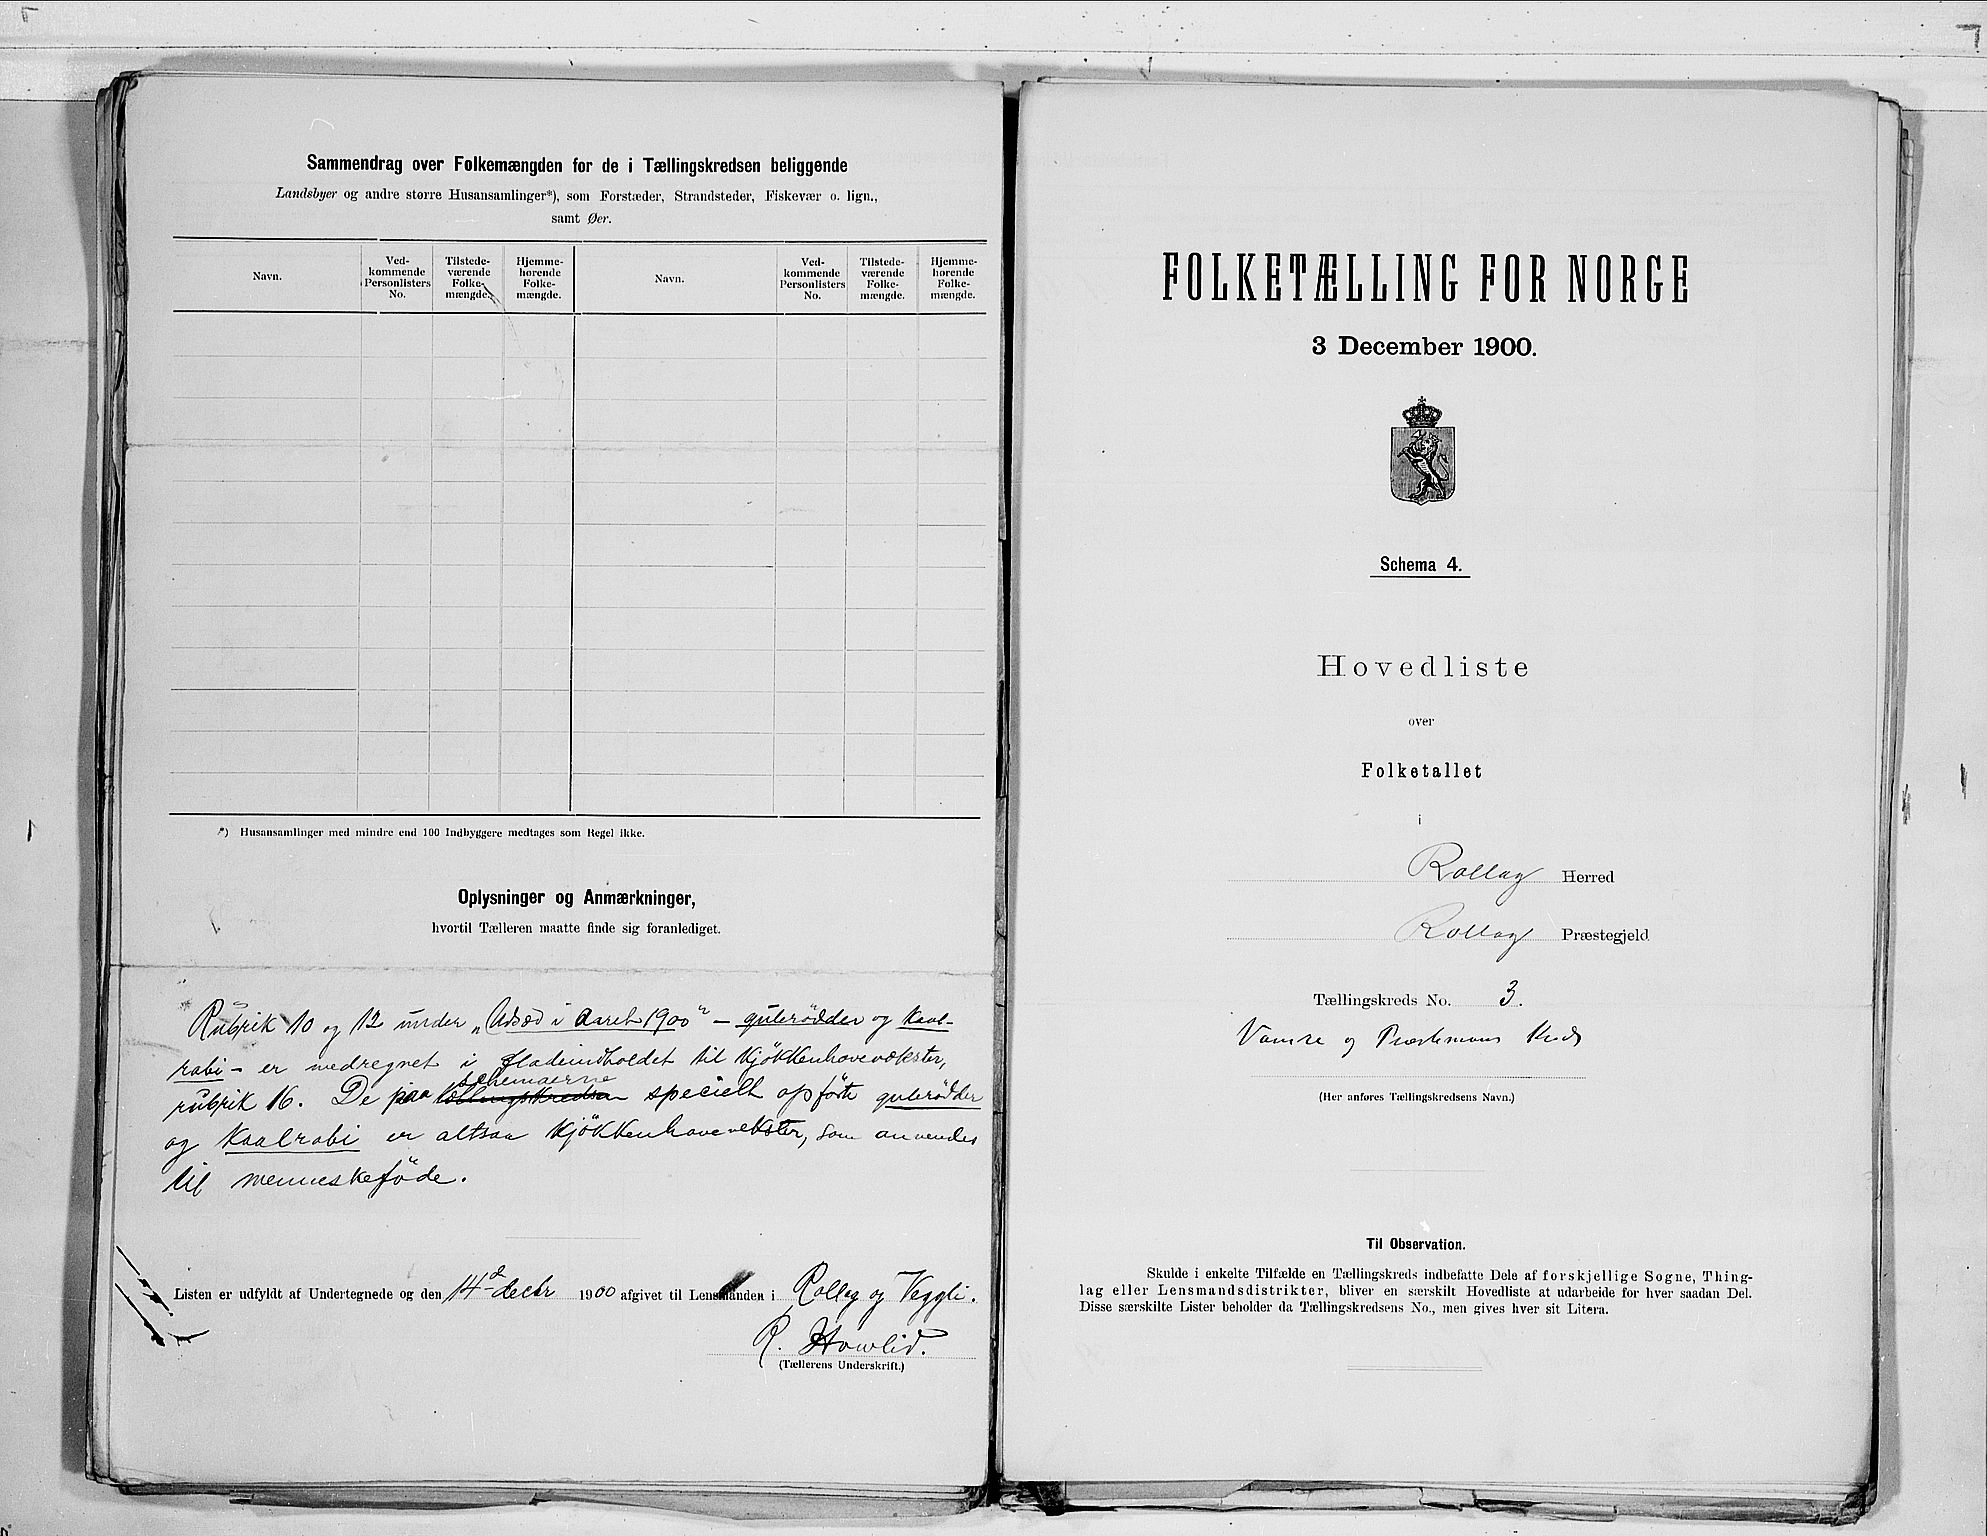 Sammendrag over Folkemængden for de i Tællingskredsen beliggende
Landsbyer og andre større Husansamlinger*), som Forstæder, Strandsteder, Fiskevær o. lign.,
samt Øer.
Navn.
Ved-
kommende
Personlisters
No.
Tilstede-
værende
Folke-
mængde.
Hjemme-
hørende
Folke-
mængde.
Navn.
Ved-
kommende
Personlisters
No.
Tilstede-
værende
Folke-
mængde.
Hjemme-
hørende
Folke-
mængde.
*) Husansamlinger med mindre end 100 Indbyggere medtages som Regel ikke.
Oplysninger og Anmærkninger,
hvortil Tælleren maatte finde sig foranlediget.
Rubrik 10 og 12 under „Udsæd i Aaret 1900" – gulerødder og kaal-
rabi – er medregnet i fladeindholdet til kjøkkenhavevækster,
schemaerne
rubrik 16. De paa tællingskredsen specielt opførte gulerødder
og kaalrabi er altsaa kjøkkenhavevekster, som anvendes
til menneskeføde.
Listen er udfyldt af Undertegnede og den 14d decbr 1900 afgivet til Lensmanden i Rollag og Veggli.
R. Howlid.
(Tællerens Underskrift.)
FOLKETÆLLING FOR NORGE
3 December 1900.
Schema 4.
Hovedliste
over
Folketallet
i
Rollag Herred
Rollag Præstegjeld
Tællingskreds No. 3.
og
(Her anføres Tællingskredsens Navn.)
Til Observation.
Skulde i enkelte Tilfælde en Tællingskreds indbefatte Dele af forskjellige Sogne, Thing-
lag eller Lensmandsdistrikter, bliver en særskilt Hovedliste at udarbeide for hver saadan Del.
Disse særskilte Lister beholder da Tællingskredsens No., men gives hver sit Litera.